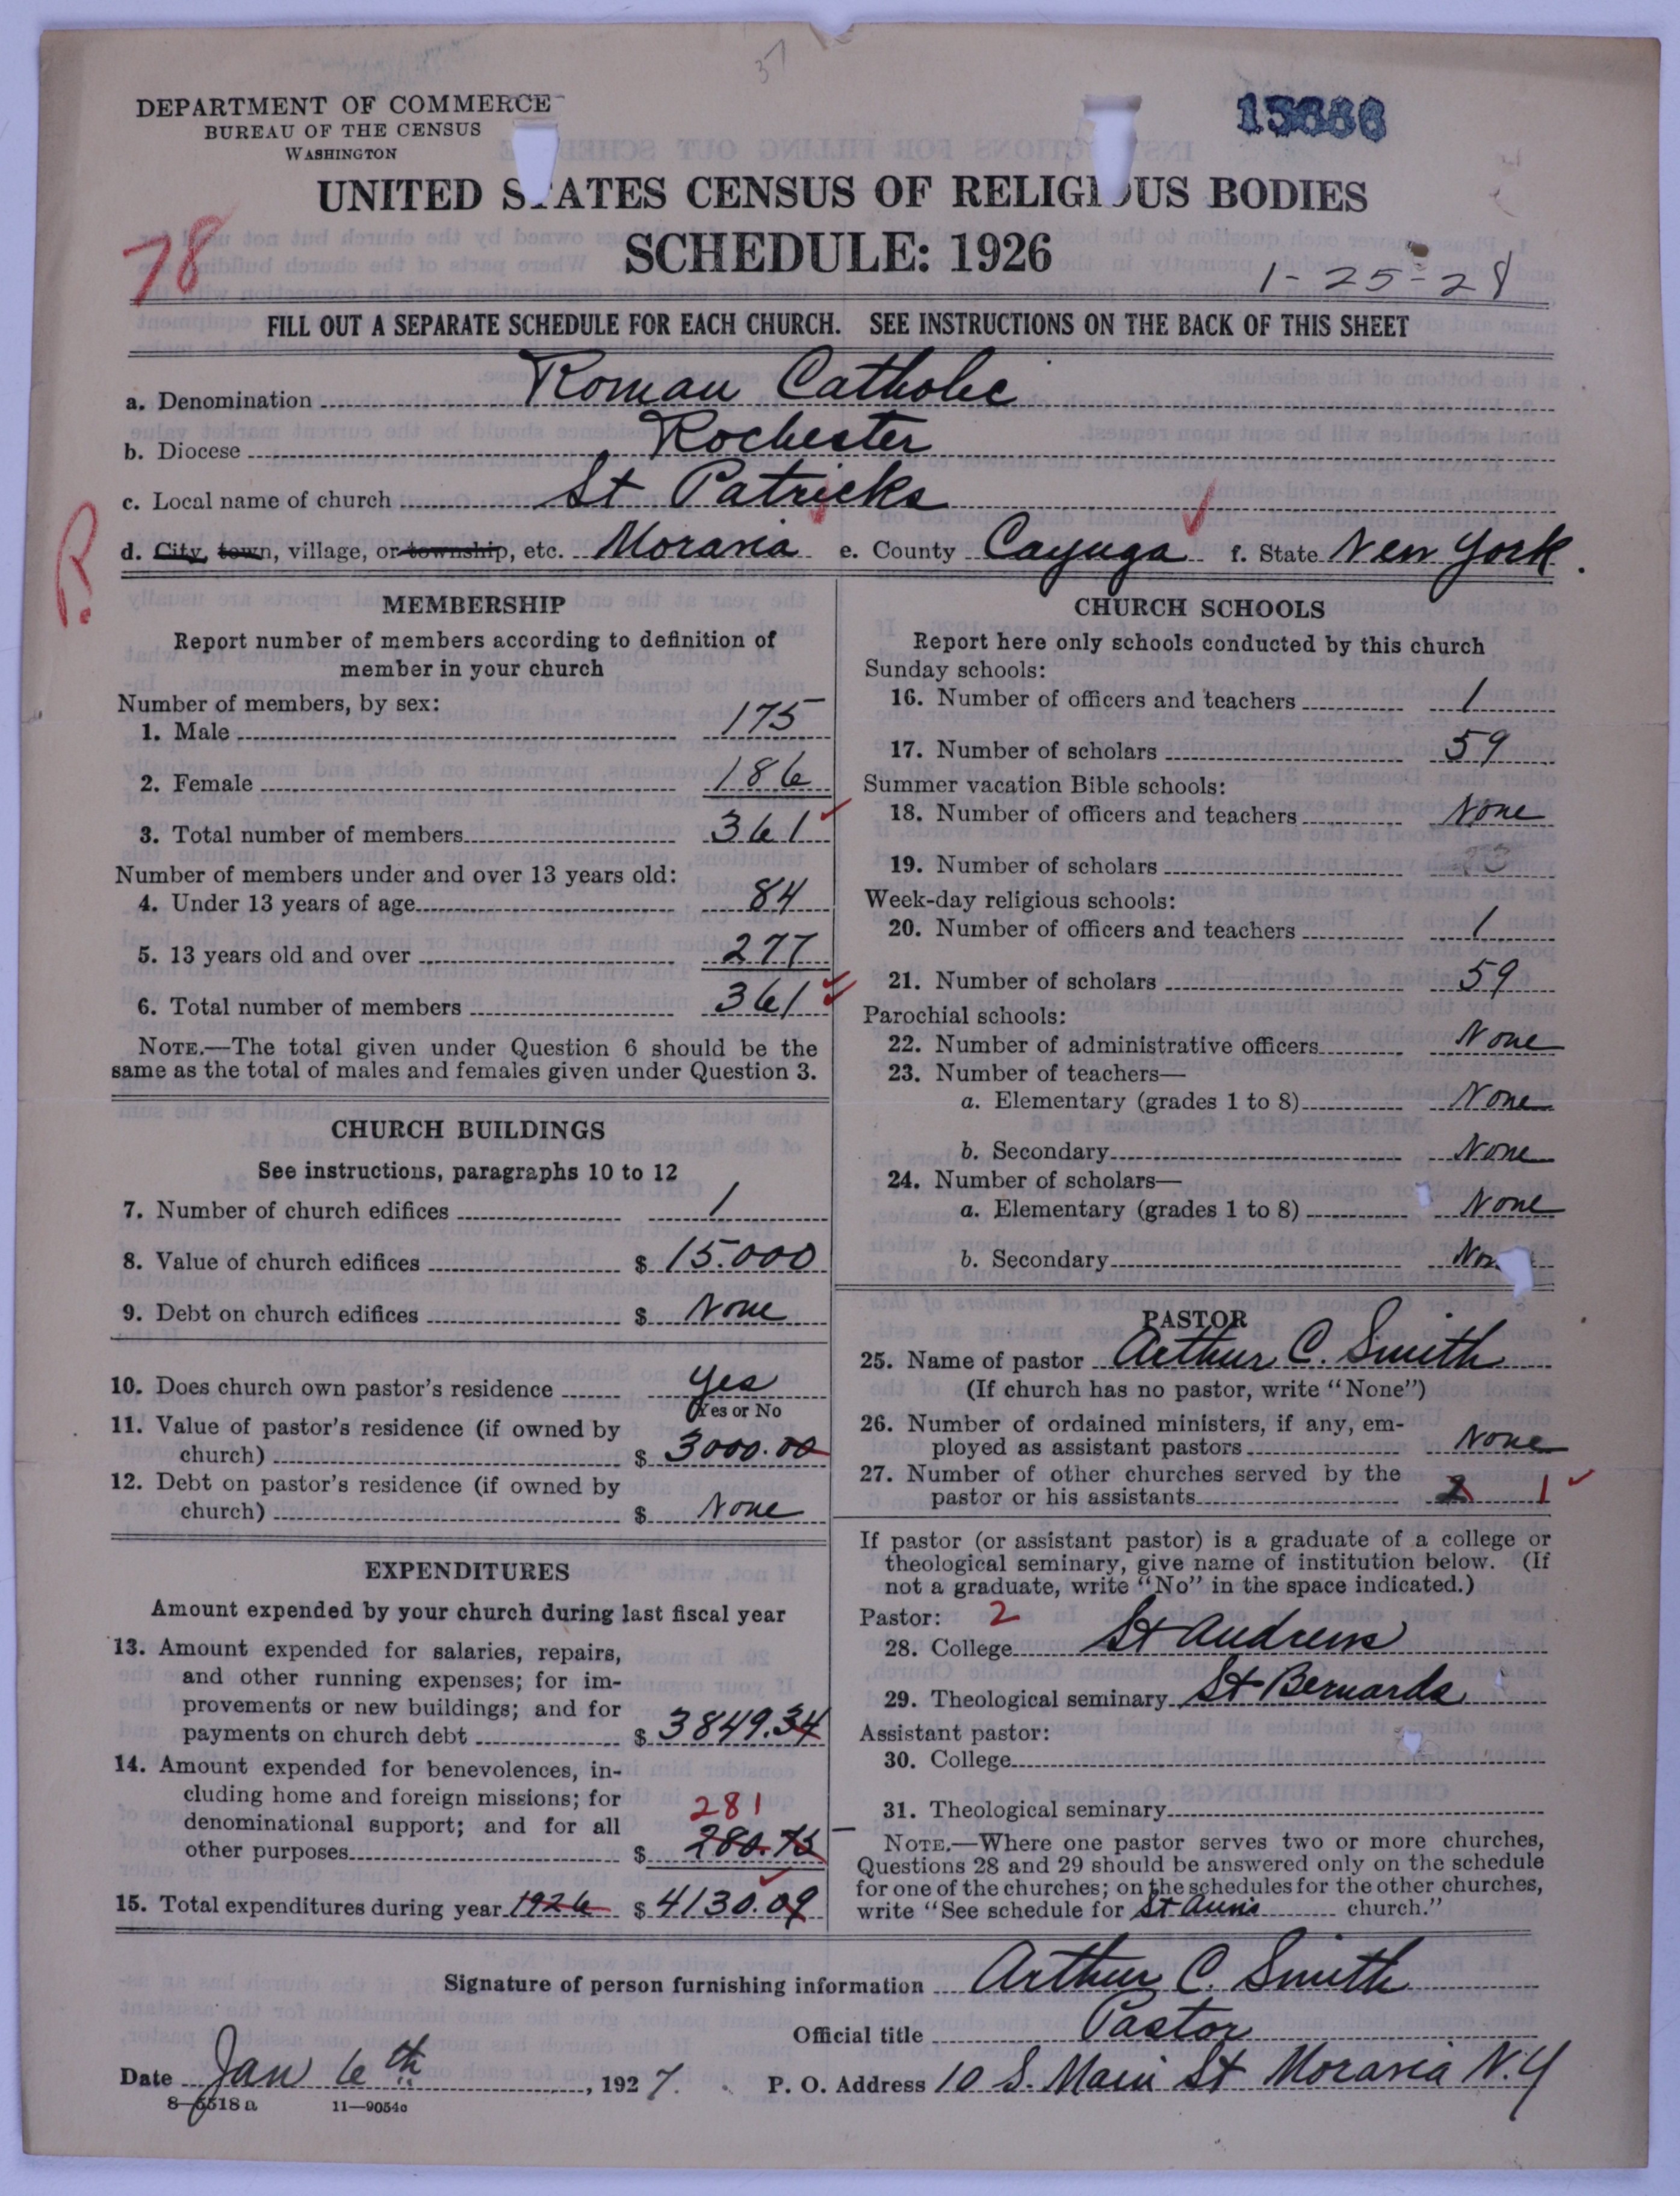 57
DEPARTMENT OF COMMERCE
BUREAU OF THE CENSUS
WASHINGTON
UNITED STATES CENSUS OF RELIGIOUS BODIES
78
SCHEDULE: 1926
1-25-28
FILL OUT A SEPARATE SCHEDULE FOR EACH CHURCH. SEE INSTRUCTIONS ON THE BACK OF THIS SHEET
a. Denomination Roman Catholic
b. Diocese Rochester
c. Local name of church St Patricks
d. City, town, village, or township, etc. Moravia e. County Cayuga f. State New York.
MEMBERSHIP
Report number of members according to definition of
member in your church
Number of members, by sex:
1. Male 175
2. Female 186
3. Total number of members 361
Number of members under and over 13 years old:
4. Under 13 years of age 84
5. 13 years old and over 277
6. Total number of members 361
NOTE.—The total given under Question 6 should be the
same as the total of males and females given under Question 3.
CHURCH BUILDINGS
See instructions, paragraphs 10 to 12
7. Number of church edifices 1
8. Value of church edifices $ 15.000
9. Debt on church edifices $ None
10. Does church own pastor's residence Yes
Yes or No
11. Value of pastor's residence (if owned by
church) $ 3000.00
12. Debt on pastor's residence (if owned by
church) $ None
EXPENDITURES
Amount expended by your church during last fiscal year
13. Amount expended for salaries, repairs,
and other running expenses; for im-
provements or new buildings; and for
payments on church debt $ 3849.34
14. Amount expended for benevolences, in-
cluding home and foreign missions; for
denominational support; and for all 281
other purposes $ 280.75
15. Total expenditures during year 1926 $ 4130.09
CHURCH SCHOOLS
Report here only schools conducted by this church
Sunday schools:
16. Number of officers and teachers 1
17. Number of scholars 59
Summer vacation Bible schools:
18. Number of officers and teachers None
19. Number of scholars
Week-day religious schools:
20. Number of officers and teachers 1
21. Number of scholars 59
Parochial schools:
22. Number of administrative officers None
23. Number of teachers—
a. Elementary (grades 1 to 8) None
b. Secondary None
24. Number of scholars—
a. Elementary (grades 1 to 8) None
b. Secondary None
PASTOR
25. Name of pastor Arthur C. Smith
(If church has no pastor, write "None")
26. Number of ordained ministers, if any, em-
ployed as assistant pastors None
27. Number of other churches served by the
pastor or his assistants 2 1
If pastor (or assistant pastor) is a graduate of a college or
theological seminary, give name of institution below. (If
not a graduate, write "No" in the space indicated.)
Pastor: 2
28. College St Andrews
29. Theological seminary St Bernards
Assistant pastor:
30. College
31. Theological seminary
NOTE.—Where one pastor serves two or more churches,
Questions 28 and 29 should be answered only on the schedule
for one of the churches; on the schedules for the other churches,
write "See schedule for St Anns church."
Signature of person furnishing information Arthur C. Smith
Official title Pastor
Date Jan 6th, 1927. P. O. Address 10 S. Main St Moravia N.Y
8—5518 a 11—9054c